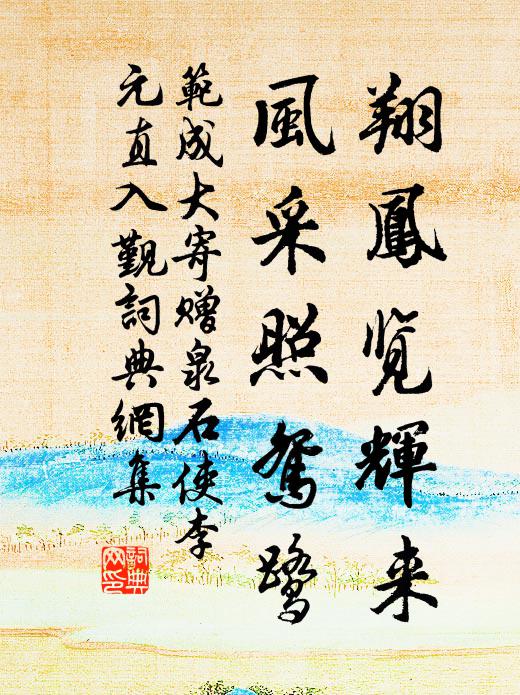 翔鳳览輝来
風采照鴛鷺
範成大寄贈泉石使李
元直入覲詞典網集
詞典
网印